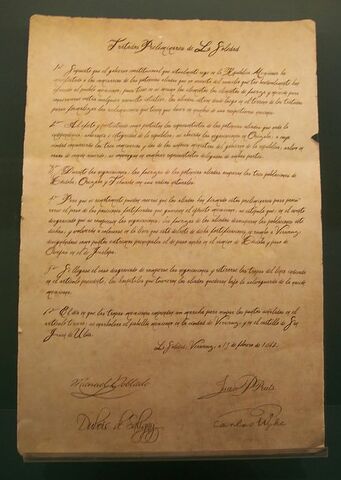 Tratados Preliminares de La Soledad
1º Supuesto que el gobierno constitucional que actualmente rige en la República Mexicana ha
manifestado a los
de las potencias aliadas que no necesita del auxilio que tan benévolamente han
ofrecido al pueblo mexicano, pues tiene en sí mismo los elementos de fuerza y opinión para
conservarse contra cualquier revuelta intestina, los aliados entran desde luego en el terreno de los tratados
para formalizar las reclamaciones que tienen que hacer en nombre de sus respectivas naciones.
2º Al efecto
protestando como protestan los representantes de las potencias aliadas que nada
independencia, soberanía e integridad de la república, se abrirán las negociaciones en Orizaba, a cuya
ciudad concurrirán los tres comisarios y dos de los señores ministros del gobierno de la república, salvo en
caso de mutuo acuerdo, se convenga en nombrar representantes delegados de ambas partes.
3º Durante las negociaciones, las fuerzas de las potencias aliadas ocuparán las tres poblaciones de
Córdoba, Orizaba y Tehuacán con sus radios naturales.
4º Para que ni remotamente pueda creerse que los aliados han firmado estos preliminares para
el paso de las posiciones fortificadas que guarnece el ejército mexicano, se estipula que, en el evento
desgraciado que se rompiesen las negociaciones, las fuerzas de los aliados desocuparán las poblaciones
dichas, y volverán a colocarse en la línea que está delante de dichas fortificaciones, en rumbo a Veracruz,
designándose como puntos extremos principales el de paso ancho en el camino de Córdoba y paso de
Ovejas en el de Jalapa.
5º Si llegare el caso desgraciado de romperse las negociaciones y retirarse las tropas
en el artículo precedente, los hospitales que tuvieren los aliados quedarán bajo la salvaguardia de la nación
mexicana.
6º El día en que las tropas
emprendan su marcha para ocupar los puntos señalados en el
artículo tercero, se enarbolará el pabellón mexicano en la ciudad de Veracruz, y en el castillo de San
Juan de Ulúa.
La Soledad, Veracruz, a 19 de febrero de 1862.
Manuel Doblado
Juan P Prim
Dubois de Saligny